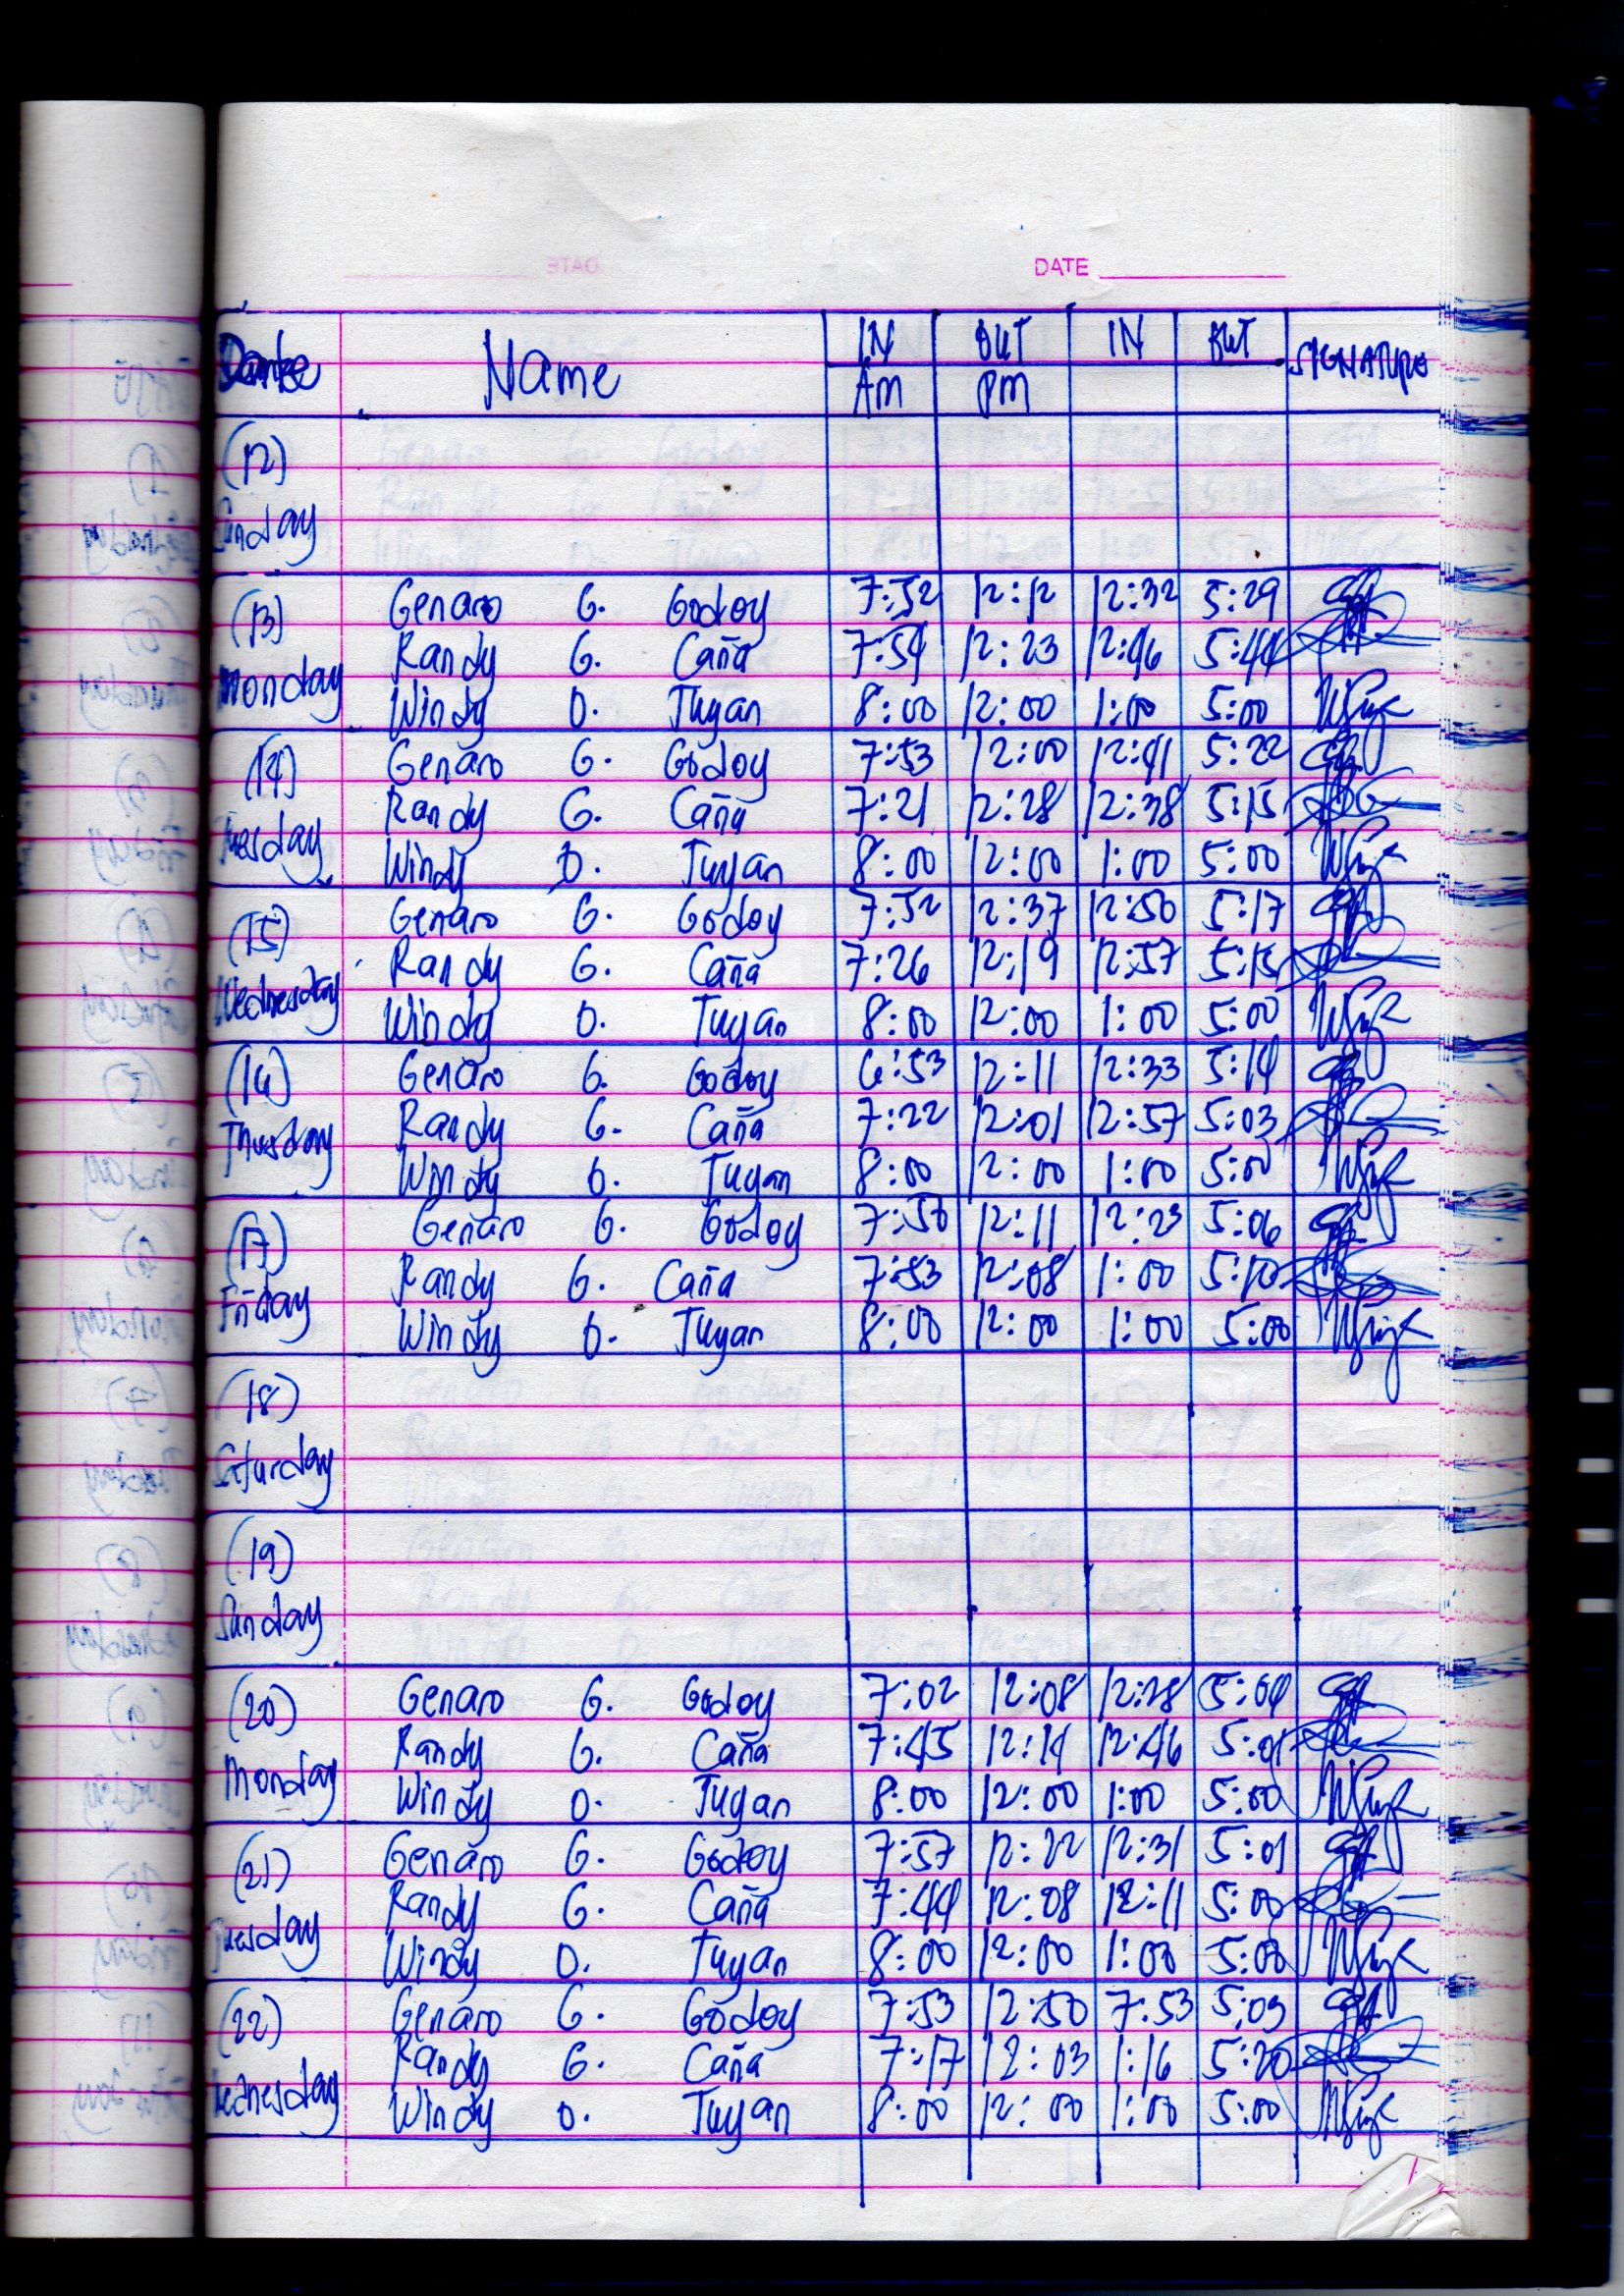 DATE
Date Name IN OUT IN OUT SIGNATURE
Am pm
(12)
Sunday
(13) Genaro G. Godoy 7:52 12:12 12:32 5:29
Randy G. Caña 7:54 12:23 12:46 5:44
Monday Windy D. Tuyan 8:00 12:00 1:00 5:00
(14) Genaro G. Godoy 7:53 12:00 12:41 5:22
Randy G. Caña 7:21 12:28 12:38 5:15
Tuesday Windy D. Tuyan 8:00 12:00 1:00 5:00
(15) Genaro G. Godoy 7:52 12:37 12:50 5:17
Randy G. Caña 7:26 12:19 12:57 5:15
Wednesday Windy D. Tuyan 8:00 12:00 1:00 5:00
(16) Genaro G. Godoy 6:53 12:11 12:33 5:14
Randy G. Caña 7:22 12:01 12:57 5:03
Thursday Windy D. Tuyan 8:00 12:00 1:00 5:00
(17) Genaro G. Godoy 7:50 12:11 12:23 5:06
Randy G. Caña 7:53 12:08 1:00 5:10
Friday Windy D. Tuyan 8:00 12:00 1:00 5:00
(18)
Saturday
(19)
Sunday
(20) Genaro G. Godoy 7:02 12:08 12:28 5:04
Randy G. Caña 7:45 12:14 12:46 5:01
Monday Windy D. Tuyan 8:00 12:00 1:00 5:00
(21) Genaro G. Godoy 7:57 12:22 12:31 5:01
Randy G. Caña 7:44 12:08 12:11 5:00
Tuesday Windy D. Tuyan 8:00 12:00 1:00 5:00
(22) Genaro G. Godoy 7:53 12:50 7:53 5:03
Randy G. Caña 7:17 12:03 1:16 5:20
Wednesday Windy D. Tuyan 8:00 12:00 1:00 5:00